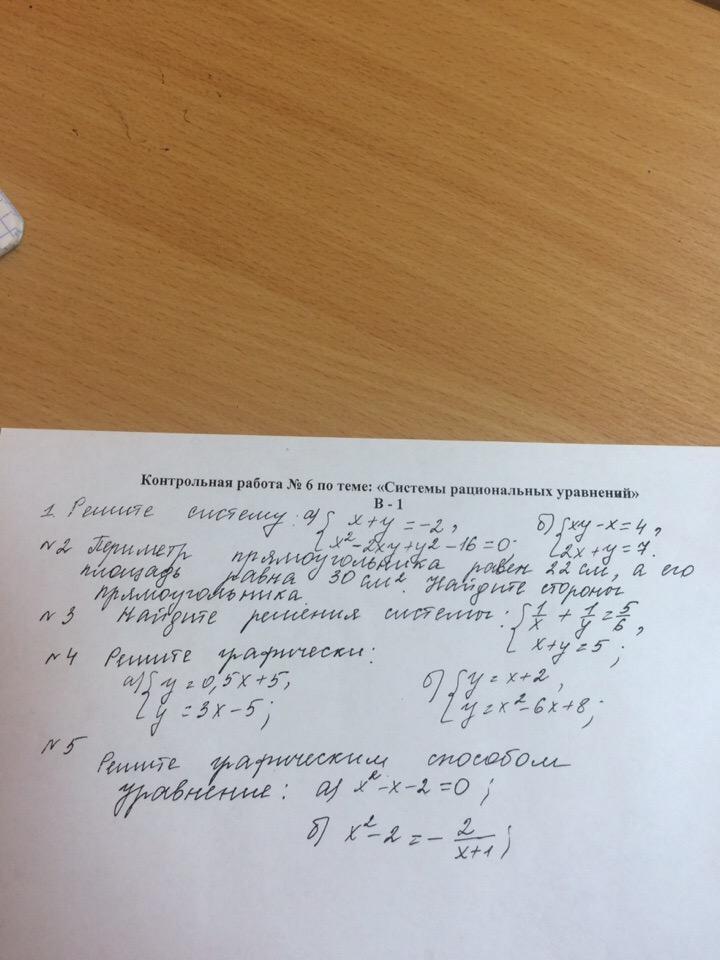 Контрольная работа № 6 по теме: «Системы рациональных уравнений»
В - 1
1. Решите систему: а) { x+y=-2, x²-2xy+y²-16=0; б) { xy-x=4, 2x+y=7.
№2 Периметр прямоугольника равен 22 см, а его
площадь равна 30 см². Найдите стороны
прямоугольника.
№3 Найдите решения системы: { 1/x + 1/y = 5/6, x+y=5;
№4 Решите графически:
а) { y=0,5x+5, y=3x-5; б) { y=x+2, y=x²-6x+8;
№5
Решите графическим способом
уравнение: а) x²-x-2=0;
б) x²-2=-2/(x+1);